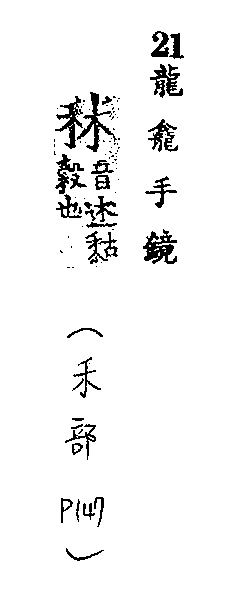 21龍龕手鏡
秫音述黏
穀也
(禾部P147)